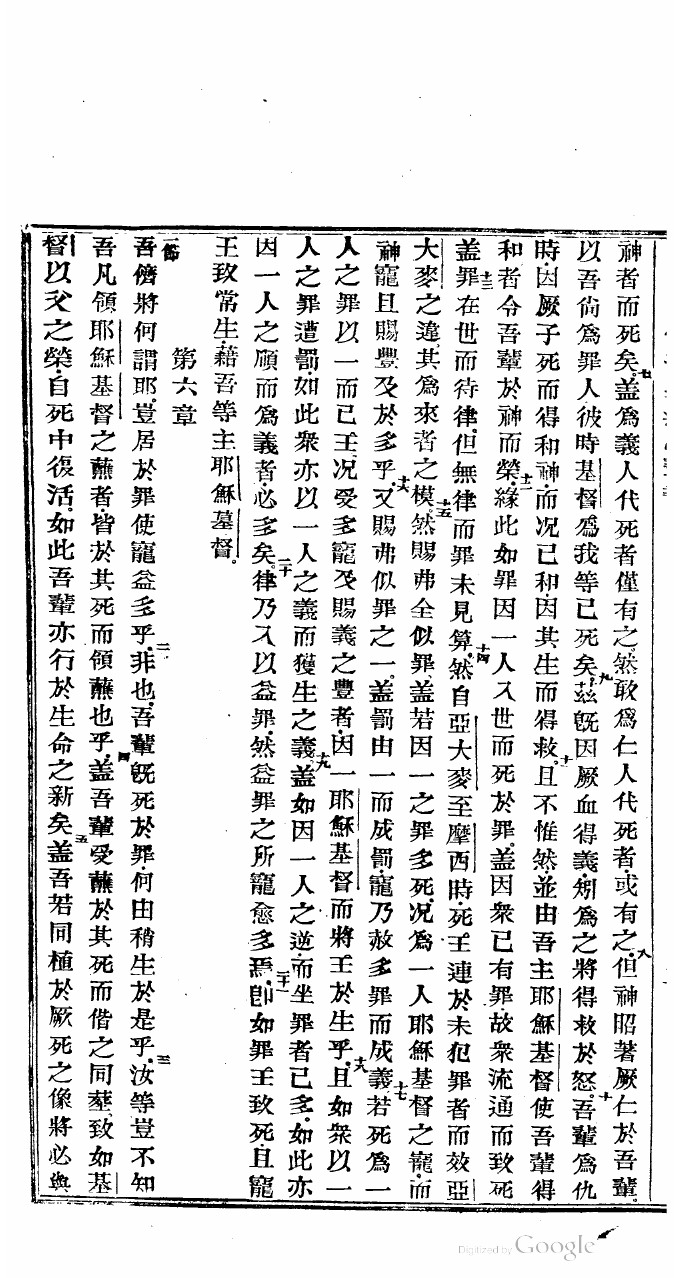 神者而死矣。七蓋爲義人代死者僅有之。然敢爲仁人代死者、或有之。八但神昭著厥仁於吾輩。
以吾尙爲罪人彼時基督爲我等已死矣。九茲旣因厥血得義、矧爲之將得救於怒。十吾輩爲仇
時、因厥子死而得和神、而况已和、因其生而得救。十一且不惟然、並由吾主耶穌基督使吾輩得
和者、今吾輩於神而榮。十二緣此如罪因一人入世而死於罪。蓋因衆已有罪故衆流通而致死
十三蓋罪在世而待律。但無律而罪未見算。十四然自亞大麥至摩西時、死王連於未犯罪者而效亞
大麥之違、其爲來者之模。十五然賜弗全似罪、蓋若因一之罪多死、况爲一人耶穌基督之寵、而
神寵且賜豐及於多乎。十六又賜弗似罪之一。蓋罰由一而成罰、寵乃赦多罪而成義。十七若死爲一
人之罪以一而已王、况受多寵及賜義之豐者、因一耶穌基督而將王於生乎。十八且如衆以一
人之罪遭罰、如此衆亦以一人之義而獲生之義。十九蓋如因一人之逆、而坐罪者已多、如此亦
因一人之順而爲義者、必多矣。二十律乃入以益罪。然益罪之所寵愈多焉。二十一卽如罪王致死、且寵
王致常生、藉吾等主耶穌基督。
第六章
一節吾儕將何謂耶。豈居於罪使寵益多乎。二非也。吾輩旣死於罪、何由稍生於是乎。三汝等豈不知
吾凡領耶穌基督之蘸者、皆於其死而領蘸也乎。四蓋吾輩受蘸於其死而偕之同葬、致如基
督以父之榮、自死中復活、如此吾輩亦行於生命之新矣。五蓋吾若同植於厥死之像將必與
Digitized by Google